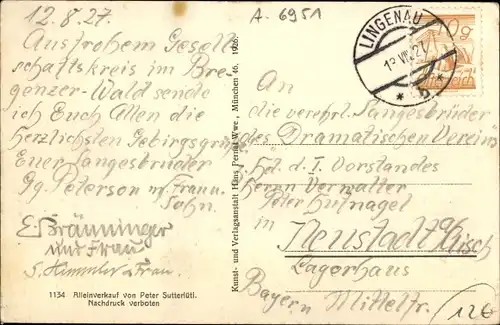 12.8.27.
A. 6951
Aus frohem Gesell
schaftskreis im Bre
genzer-Wald sende
ich Euch Allen die
herzlichsten Gebirgsgrüße
Euer Sangesbruder
Gg. Peterson m. Frau u.
Sohn.
E. Bräuninger
und Frau
S. Himmler u. Frau.
1134 Alleinverkauf von Peter Sutterlüti.
Nachdruck verboten
Kunst- und Verlagsanstalt Hans Pernat Wwe., München 46, 1926.
LINGENAU
10g
An
die verehrl. Sangesbrüder
des Dramatischen Vereins
Hd. d. I. Vorstandes
Herrn Verwalter
Peter Hufnagel
in Neustadt a/Aisch
Lagerhaus
Bayern Mittelfr.
12€